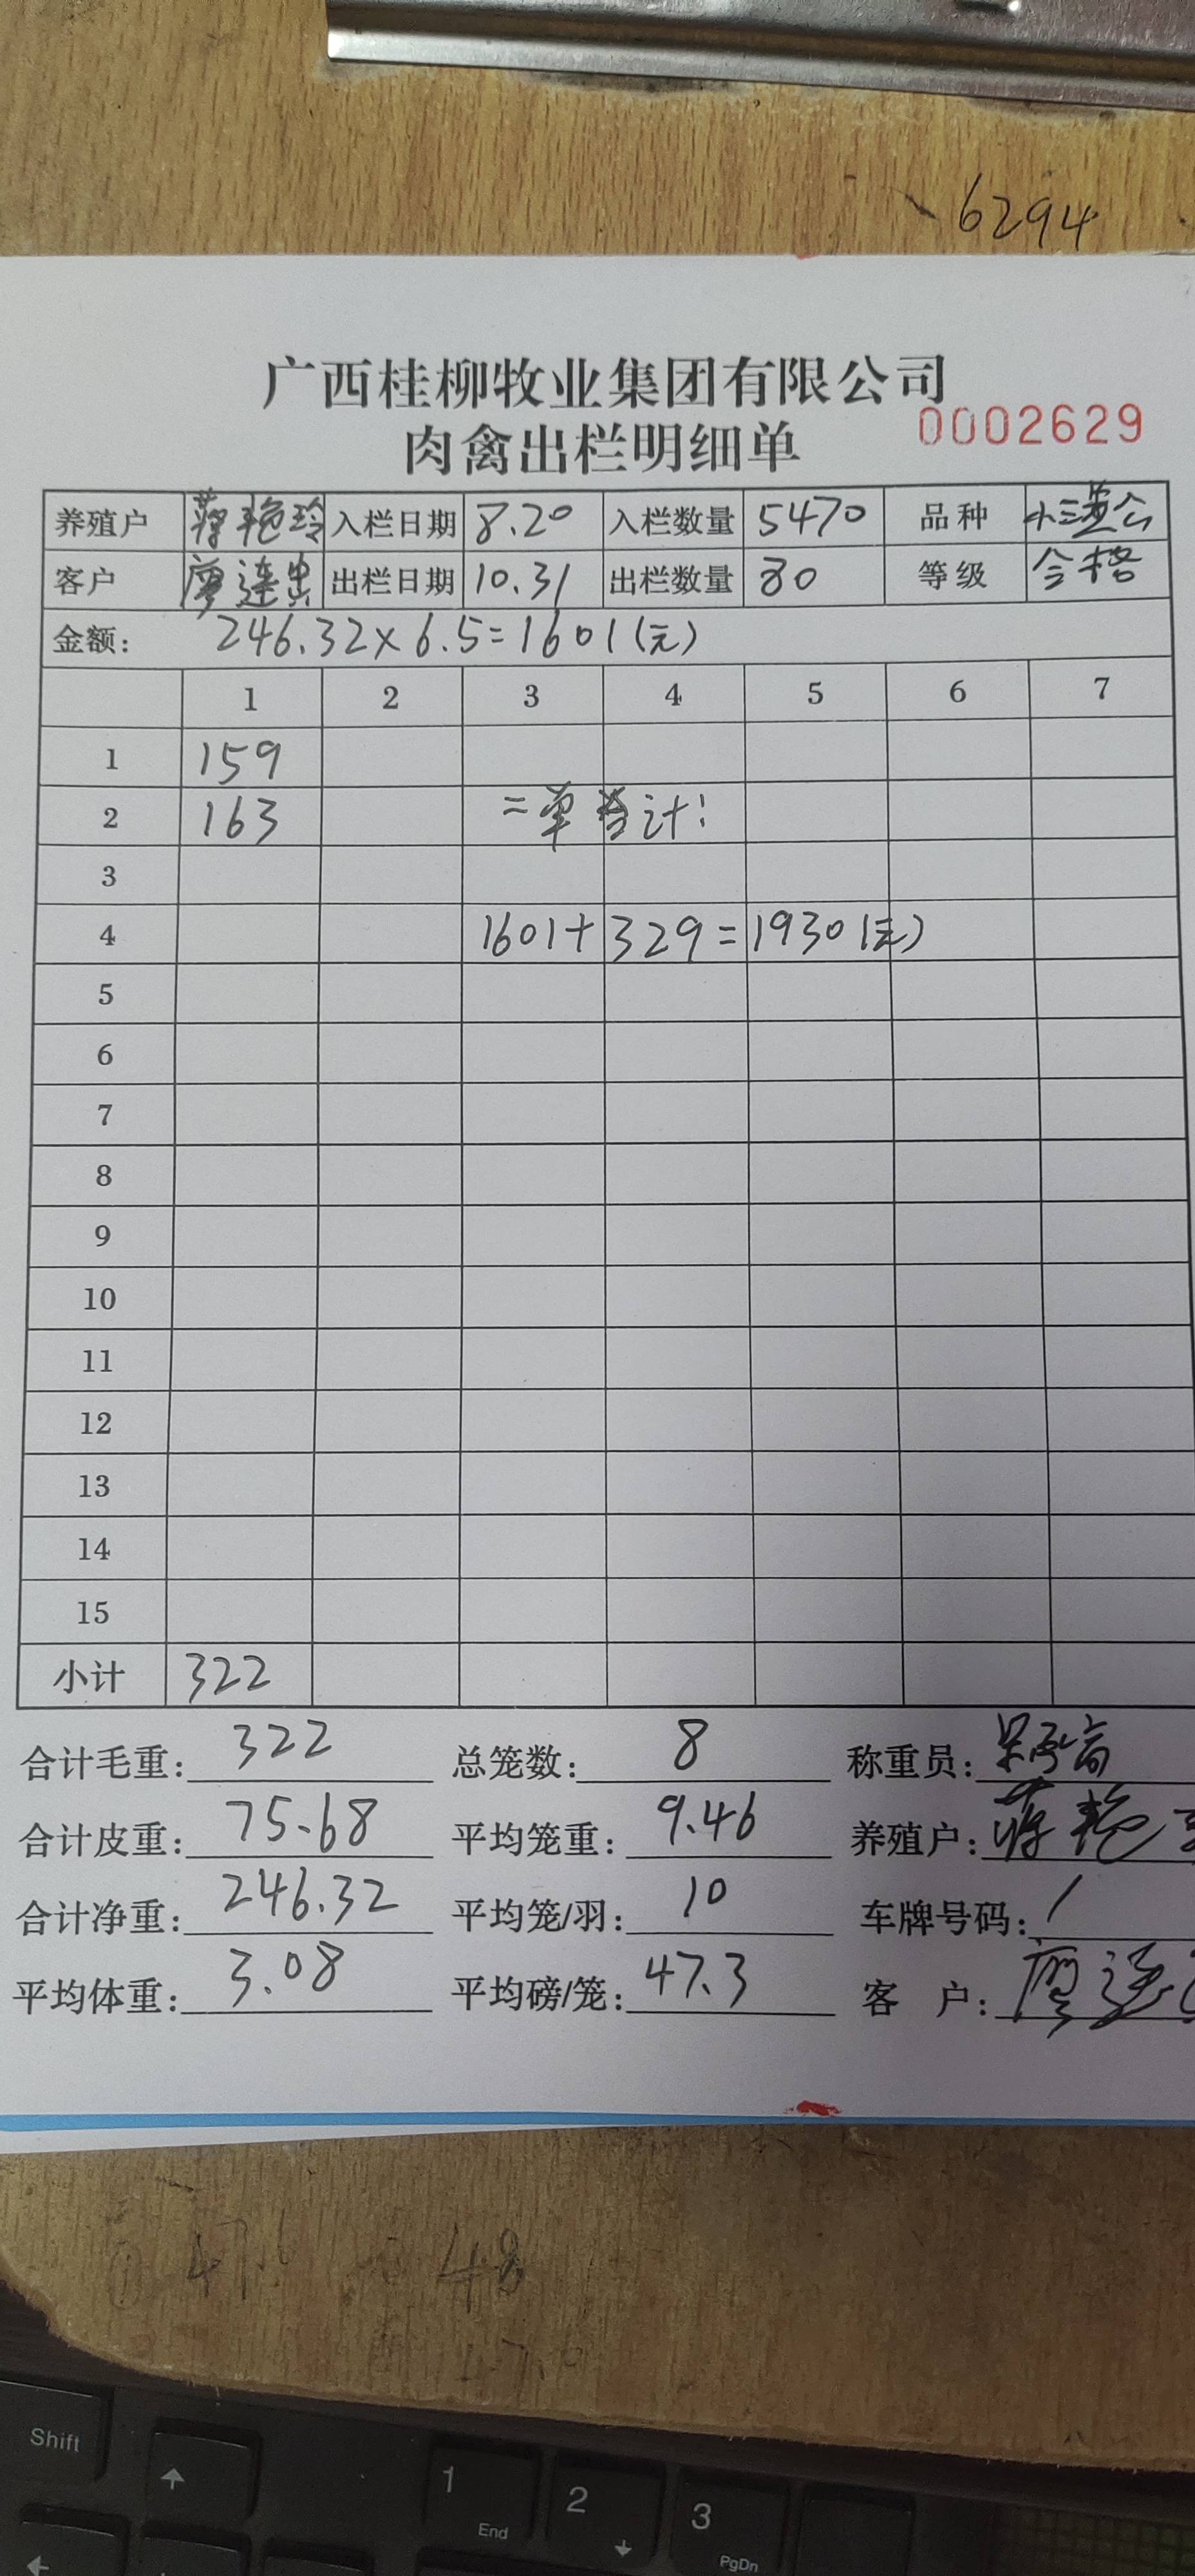 6294
广西桂柳牧业集团有限公司
肉禽出栏明细单 0002629
养殖户 蒋艳玲 入栏日期 8.20 入栏数量 5470 品种
客户 廖连 出栏日期 10.31 出栏数量 80 等级 合格
金额: 246.32×6.5=1601(元)
1 2 3 4 5 6 7
1 159
2 163 =单合计:
3
4 1601+329=1930(元)
5
6
7
8
9
10
11
12
13
14
15
小计 322
合计毛重: 322 总笼数: 8 称重员:
合计皮重: 75.68 平均笼重: 9.46 养殖户: 蒋艳
合计净重: 246.32 平均笼/羽: 10 车牌号码: /
平均体重: 3.08 平均磅/笼: 47.3 客 户: 廖连
47.6 48
Shift
1 End
2
3 PgDn